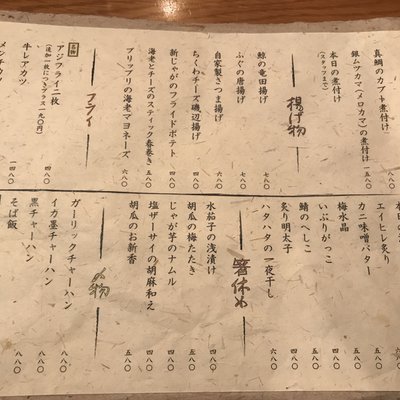 真鯛のカブト煮付け
銀ムツカマ（メロカマ）の煮付け
本日の煮付け
（スタッフまで）
揚げ物
鯨の竜田揚げ 七八〇
ふぐの唐揚げ 七八〇
自家製さつま揚げ 六八〇
ちくわチーズ磯辺揚げ 四八〇
新じゃがのフライドポテト 四八〇
海老とチーズのスティック春巻き 五八〇
プリップリの海老マヨネーズ 六八〇
フライ
名物
アジフライ二枚
（追加一枚につきプラス一九〇円） 四八〇
牛レアカツ 一四八〇
メンチカツ
エイヒレ炙り
カニ味噌バター 五八〇
梅水晶 四八〇
いぶりがっこ 五八〇
鯖のへしこ 四八〇
炙り明太子 六八〇
ハタハタの一夜干し 六八〇
箸休め
水茄子の浅漬け 四八〇
胡瓜の梅たたき 四八〇
じゃが芋のナムル 四八〇
塩ザーサイの胡麻和え 四八〇
胡瓜のお新香 五八〇
〆物
ガーリックチャーハン 八八〇
イカ墨チャーハン 八八〇
黒チャーハン 八八〇
そば飯 八八〇